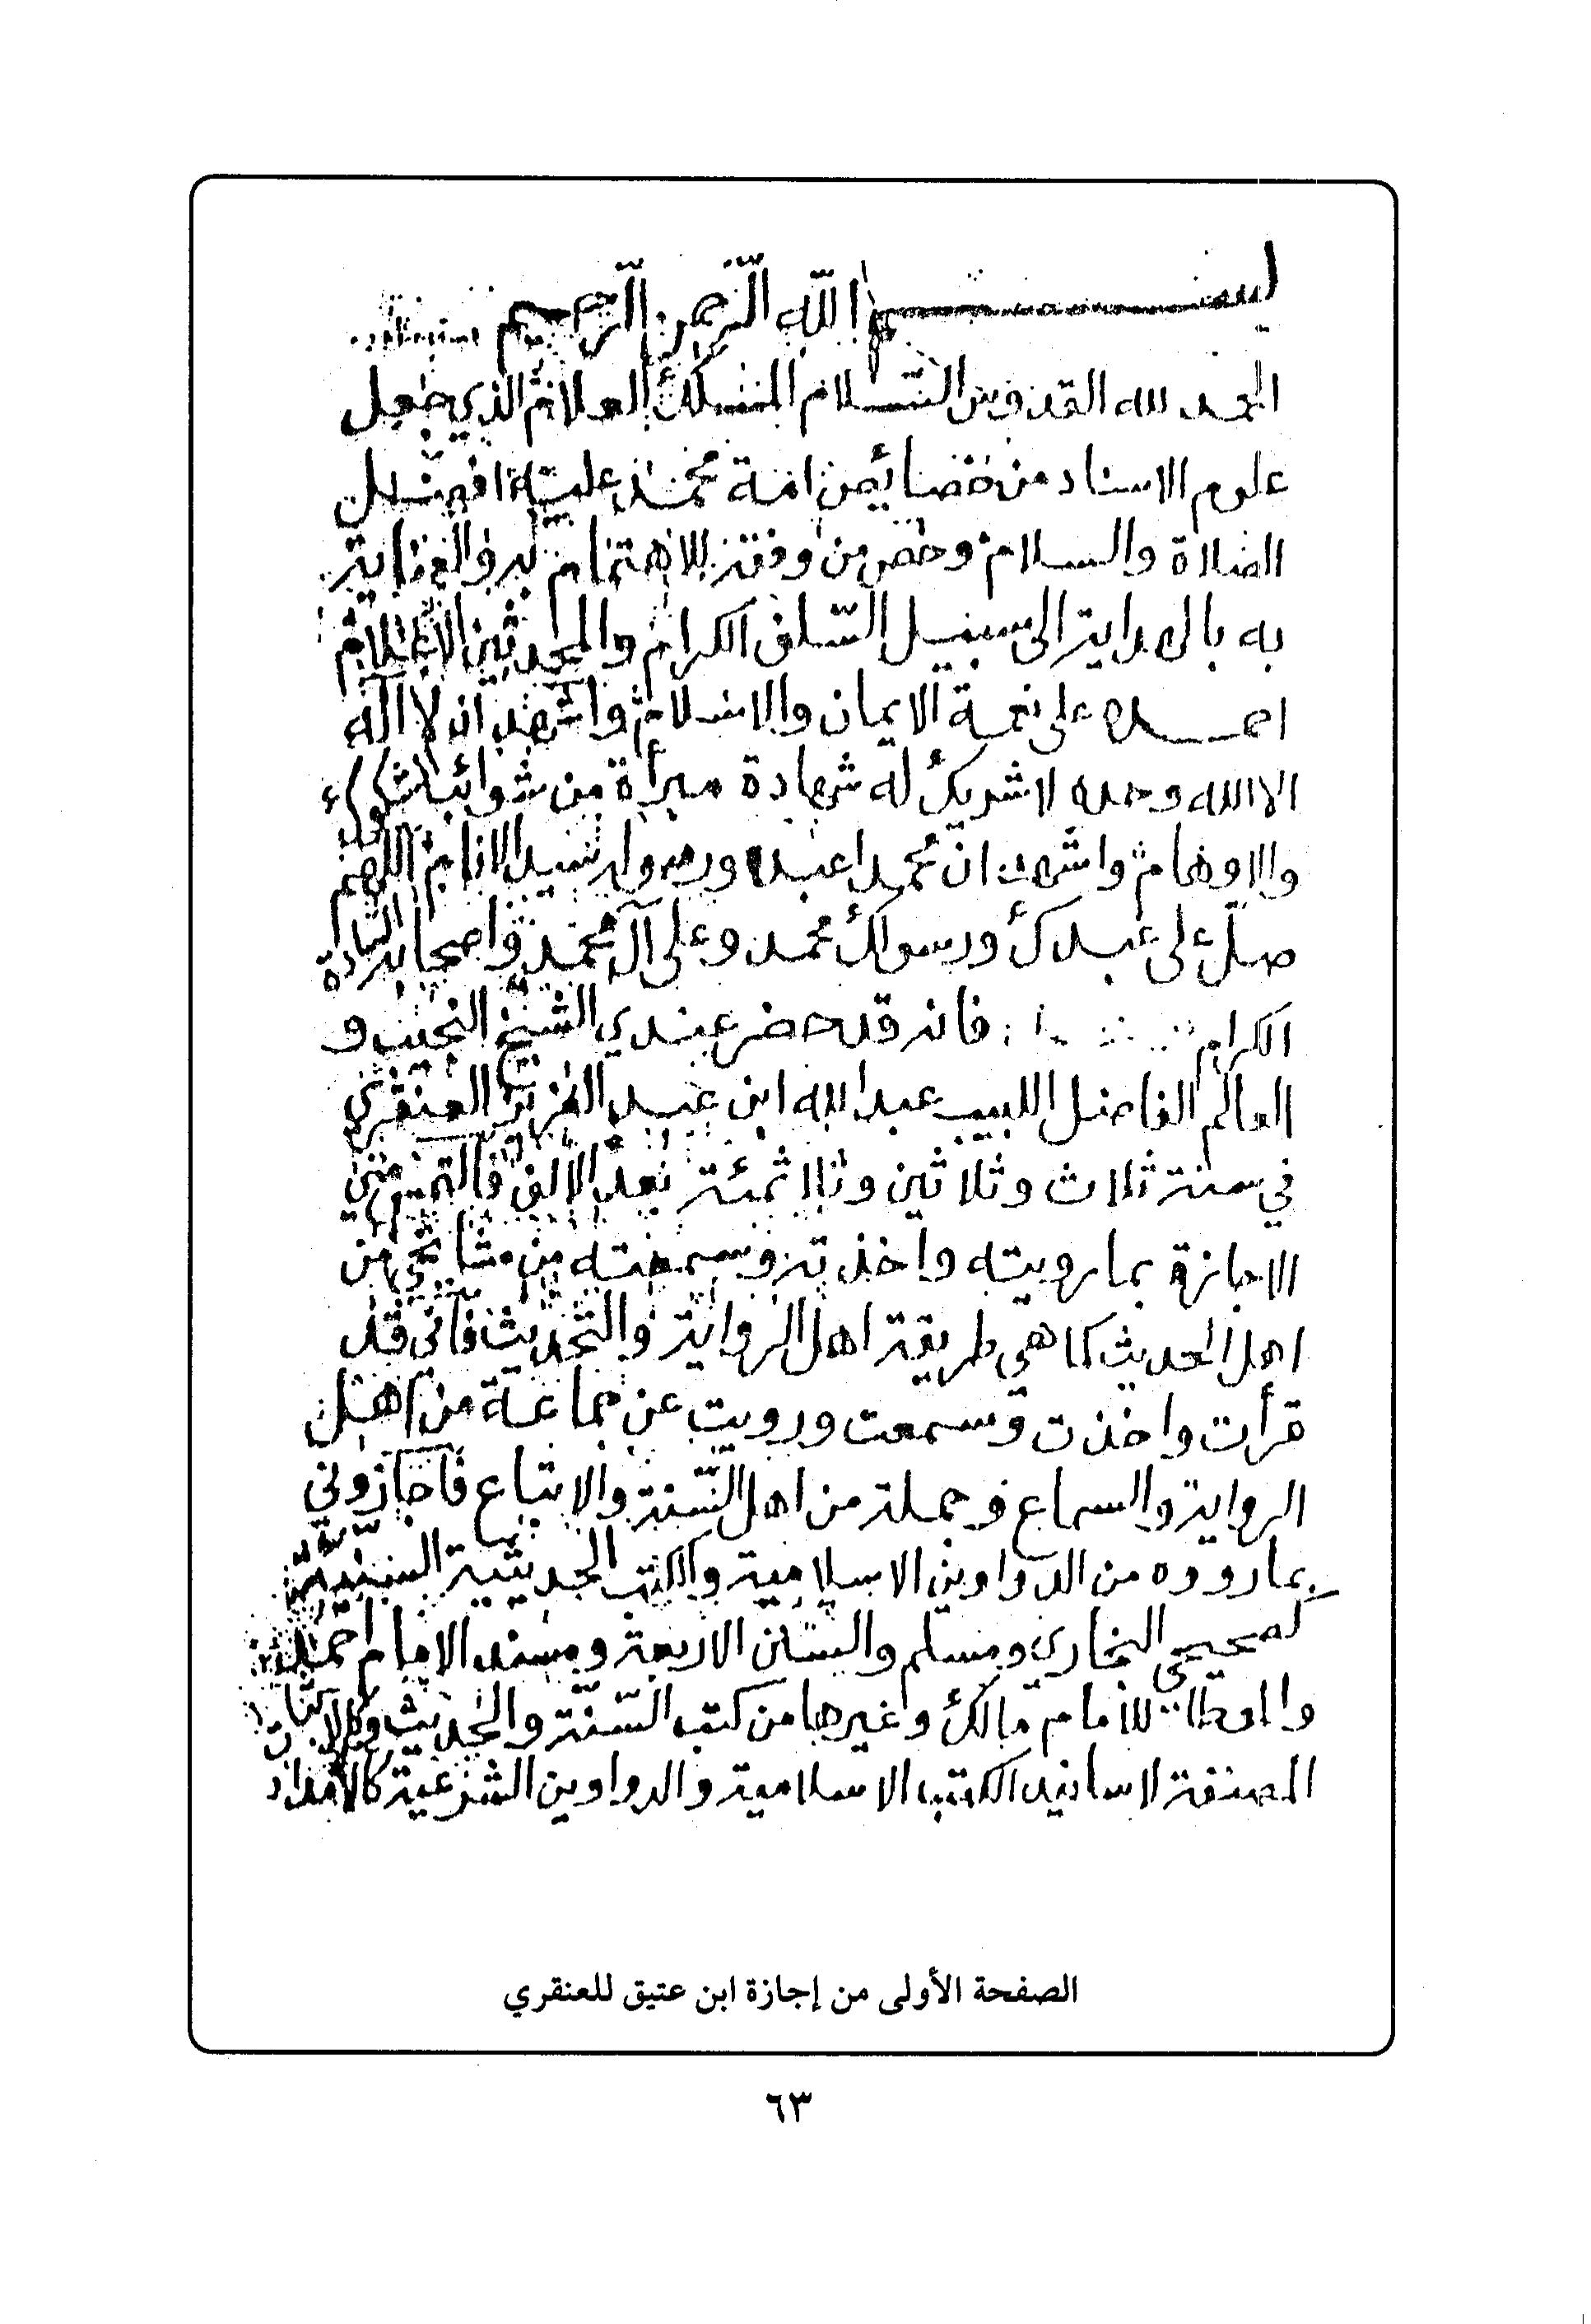 بسم الله الرحمن الرحيم
الحمد لله القدوس السلام الملك العلام الذي جعل
علوم الاسناد من خصائص امة محمد عليه افضل
الصلاة والسلام وخص من وفقه للاهتمام به والعناية
به بالهداية الى سبيل السلف الكرام والمحدثين الاعلام
احمده على نعمة الايمان والاسلام واشهد ان لا اله
الا الله وحده لا شريك له شهادة مبرأة من شوائب الشكوك
والاوهام واشهد ان محمدا عبده ورسوله سيد الانام اللهم
صل على عبدك ورسولك محمد وعلى آل محمد واصحابه السادة
الكرام فانه قد حضر عندي الشيخ النجيب و
العالم الفاضل اللبيب عبد الله ابن عبد العزيز العنقري
في سنة ثلاث وثلاثين وثلاثمئة بعد الالف فالتمس مني
الاجازة بما رويته واخذته وسمعته من مشايخي من
اهل الحديث كما هي طريقة اهل الرواية والتحديث فاني قد
قرأت واخذت وسمعت ورويت عن جماعة من اهل
الرواية والسماع وجملة من اهل السنة والاتباع فاجازوني
بما رووه من الدواوين الاسلامية والكتب الحديثية السنية
كصحيحي البخاري ومسلم والسنن الاربعة ومسند الامام احمد
والموطا للامام مالك وغيرها من كتب السنة والحديث
المصنفة لاسانيد الكتب الاسلامية والدواوين الشرعية كالامداد
الصفحة الأولى من إجازة ابن عتيق للعنقري
٦٣